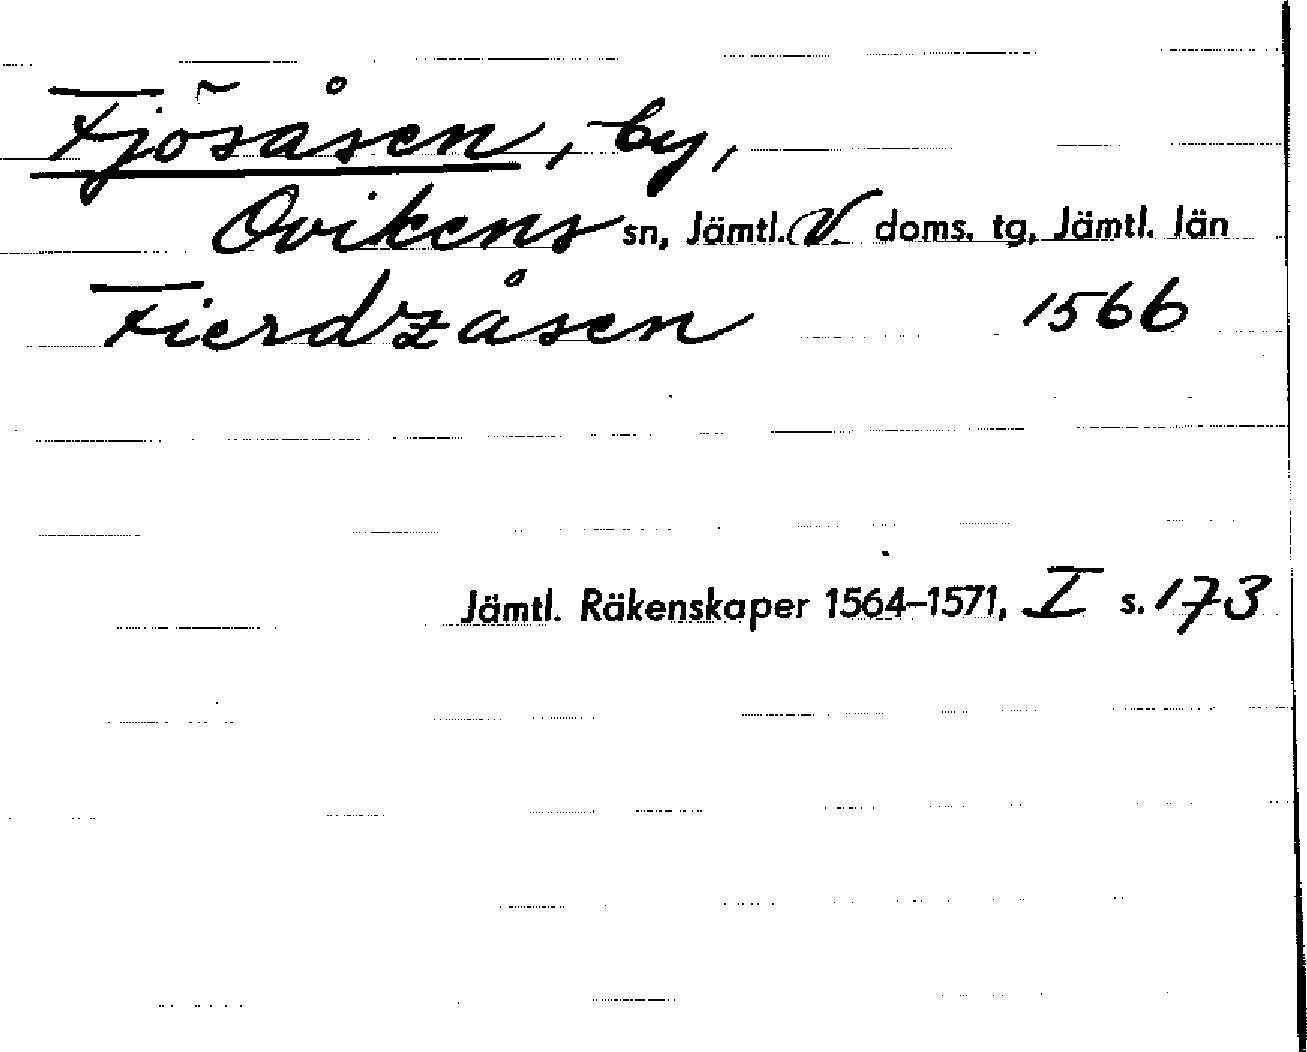 Fjösåsen, by,
Ovikens sn, Jämtl. V. doms. tg, Jämtl. län
Fierdzåsen 1566
Jämtl. Räkenskaper 1564–1571, I s. 173